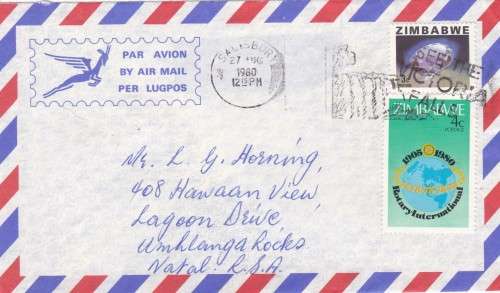 PAR AVION
BY AIR MAIL
PER LUGPOS
SALISBURY
27
1980
12 PM
ZIMBABWE
SEE THE
VICTORIA
FALLS
ZIMBABWE
4c
1905 1980
Rotary International
Mr. L. G. Horning,
408 Hawaan View,
Lagoon Drive,
Umhlanga Rocks
Natal. R.S.A.